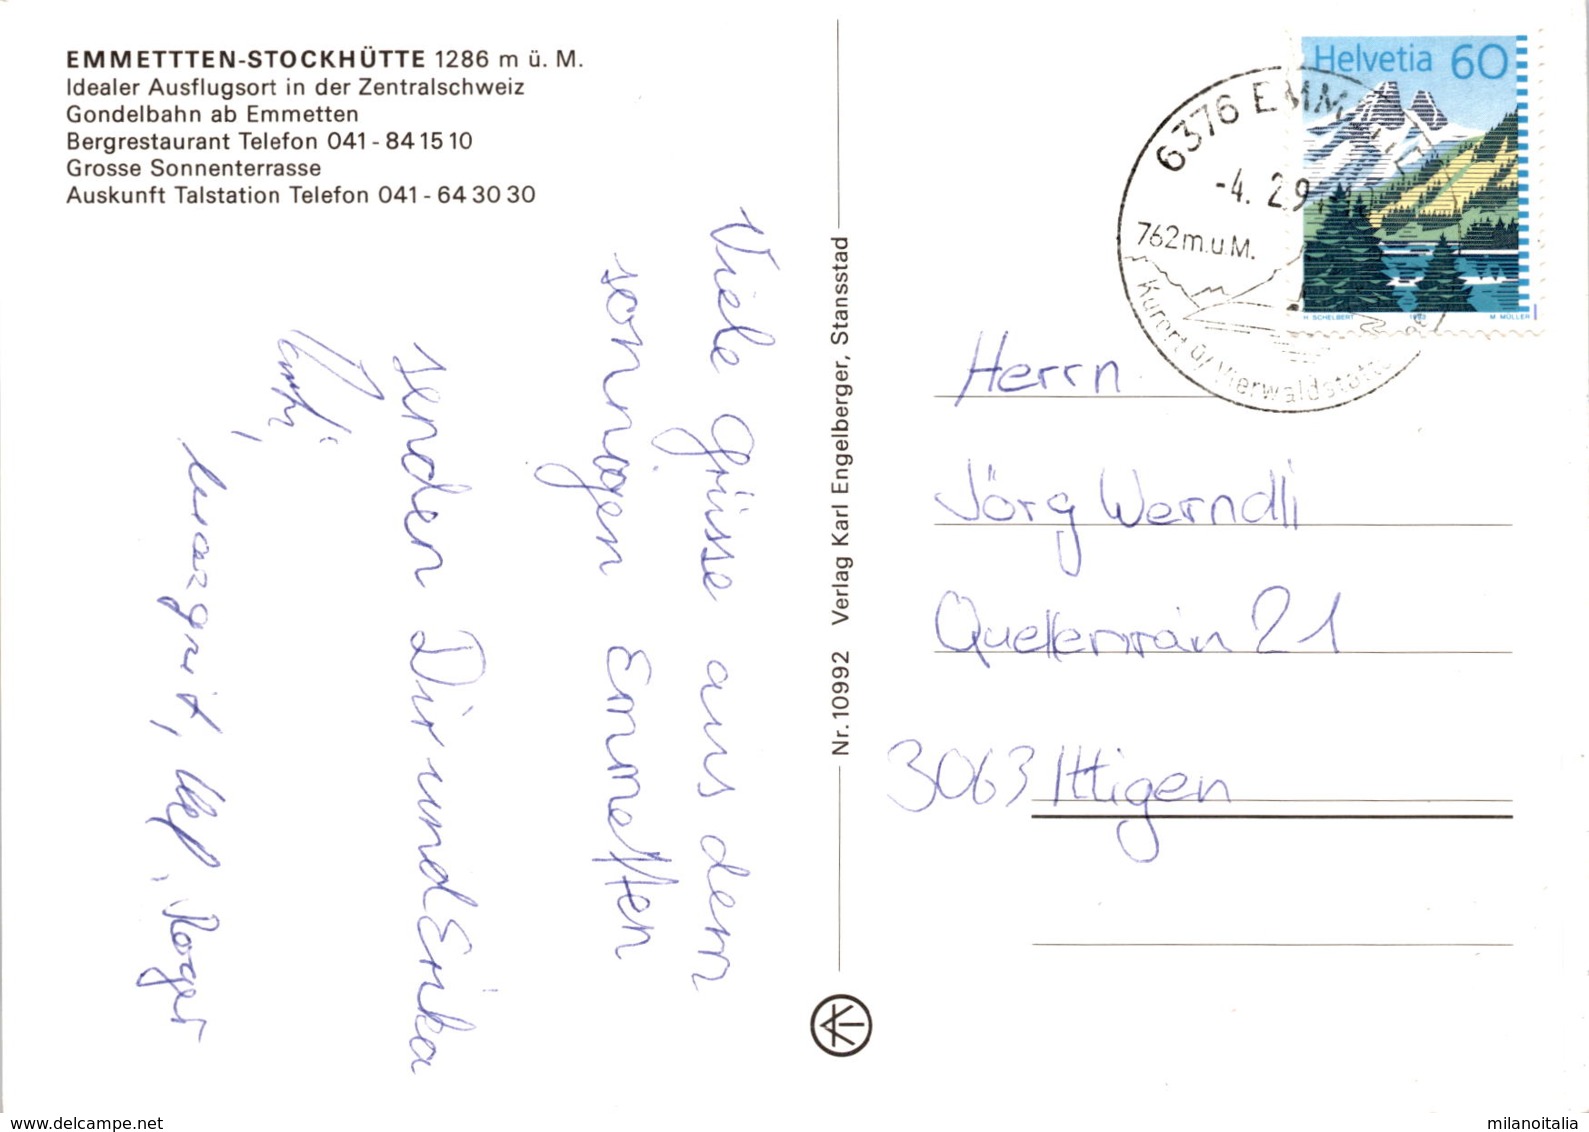 EMMETTTEN-STOCKHÜTTE 1286 m ü. M.
Idealer Ausflugsort in der Zentralschweiz
Gondelbahn ab Emmetten
Bergrestaurant Telefon 041 - 84 15 10
Grosse Sonnenterrasse
Auskunft Talstation Telefon 041 - 64 30 30
Viele Grüsse aus dem
sonnigen Emmetten
senden Dir und Erika
Margrit, Roger
Nr. 10992 Verlag Karl Engelberger, Stansstad
Helvetia 60
H. SCHELBERT M. MÜLLER
6376 EMM
-4. 2.9
762 m.ü.M.
Kurort ü/Vierwaldstätte
Herrn
Jörg Werndli
Quellenrain 21
3063 Ittigen
www.delcampe.net
milanoitalia